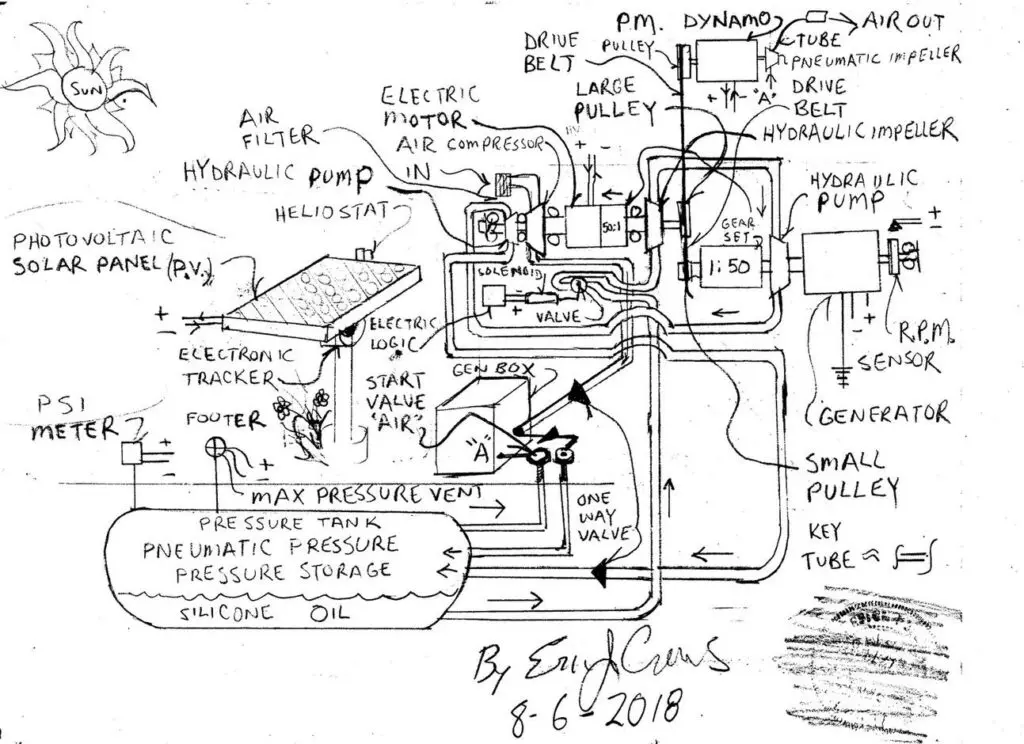 SUN
P.M. DYNAMO
AIR OUT
PULLEY
TUBE
PNEUMATIC IMPELLER
DRIVE
BELT
+ - "A"
DRIVE
BELT
LARGE
PULLEY
ELECTRIC
MOTOR
AIR COMPRESSOR
AIR
FILTER
IN
HYDRAULIC PUMP
HYDRAULIC IMPELLER
HYDRAULIC
PUMP
HELIOSTAT
+ -
50:1
GEAR
SET
1:50
+
-
PHOTOVOLTAIC
SOLAR PANEL (P.V.)
SOLENOID
+ -
VALVE
+
-
ELECTRIC
LOGIC
ELECTRONIC
TRACKER
- +
R.P.M.
SENSOR
GEN BOX
START
VALVE
"AIR"
"A"
GENERATOR
PSI
METER
+
-
FOOTER
+
-
MAX PRESSURE VENT
SMALL
PULLEY
ONE
WAY
VALVE
KEY
TUBE ≈
PRESSURE TANK
PNEUMATIC PRESSURE
PRESSURE STORAGE
SILICONE OIL
By
8-6-2018